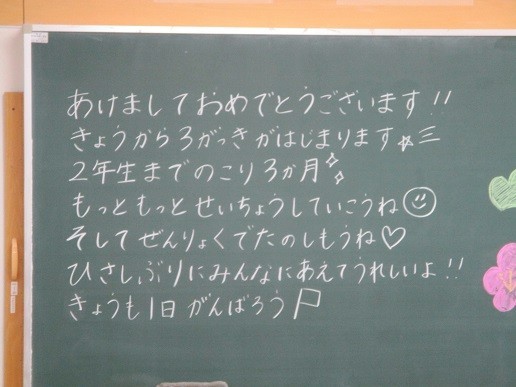 あけましておめでとうございます!!
きょうから3がっきがはじまります☆彡
2年生までのこり3か月
もっともっとせいちょうしていこうね
そしてぜんりょくでたのしもうね♡
ひさしぶりにみんなにあえてうれしいよ!!
きょうも1日がんばろう